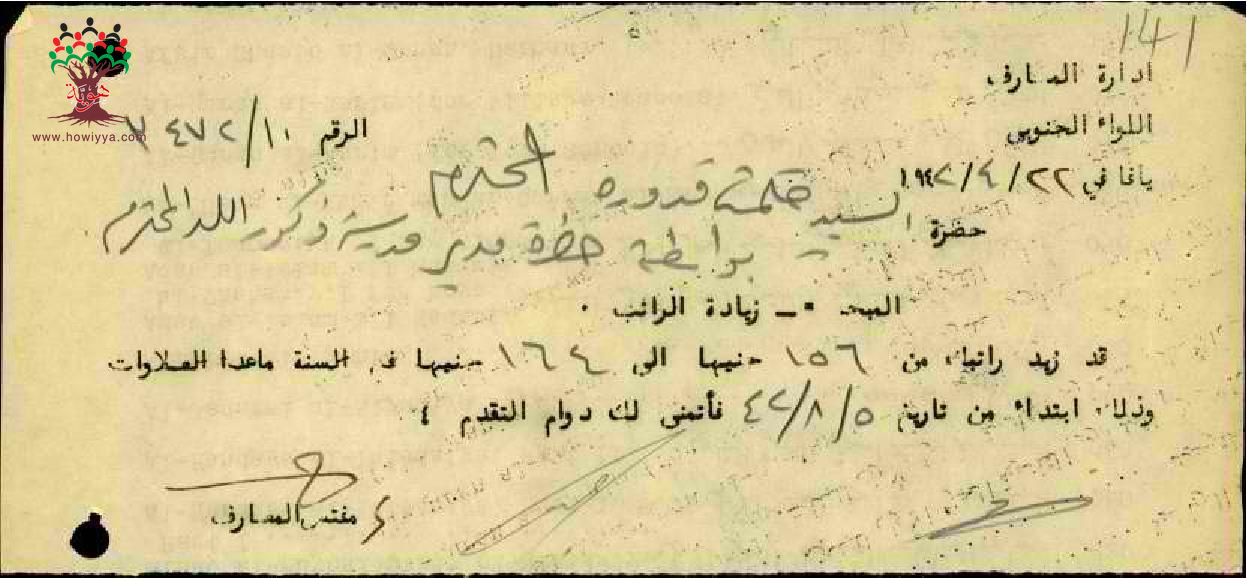 141
ادارة المعارف
اللواء الجنوبي
الرقم ١٠/٧٤٧٢
يافا في ٢٢/٤/١٩٤٢
حضرة السيد حكمة قدوره المحترم
بواسطة حضرة مدير مدرسة ذكور اللد المحترم
المبحث - زيادة الراتب .
قد زيد راتبك من ١٥٦ جنيها الى ١٦٤ جنيها في السنة ماعدا العلاوات
وذلك ابتداء من تاريخ ٤٢/٨/٥ فأتمنى لك دوام التقدم
مفتش المعارف
هوية
www.howiyya.com